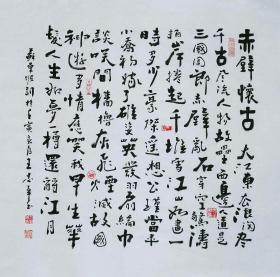 赤壁懷古 大江東去浪淘盡
千古風流人物故壘西邊人道是
三國周郎赤壁亂石穿空驚濤
拍岸捲起千堆雪江山如畫一
時多少豪傑遙想公瑾當年
小喬初嫁了雄姿英發羽扇綸巾
談笑間檣櫓灰飛煙滅故國
神遊多情應笑我早生華
髮人生如夢一樽還酹江月
蘇東坡詞於壬寅良月王志